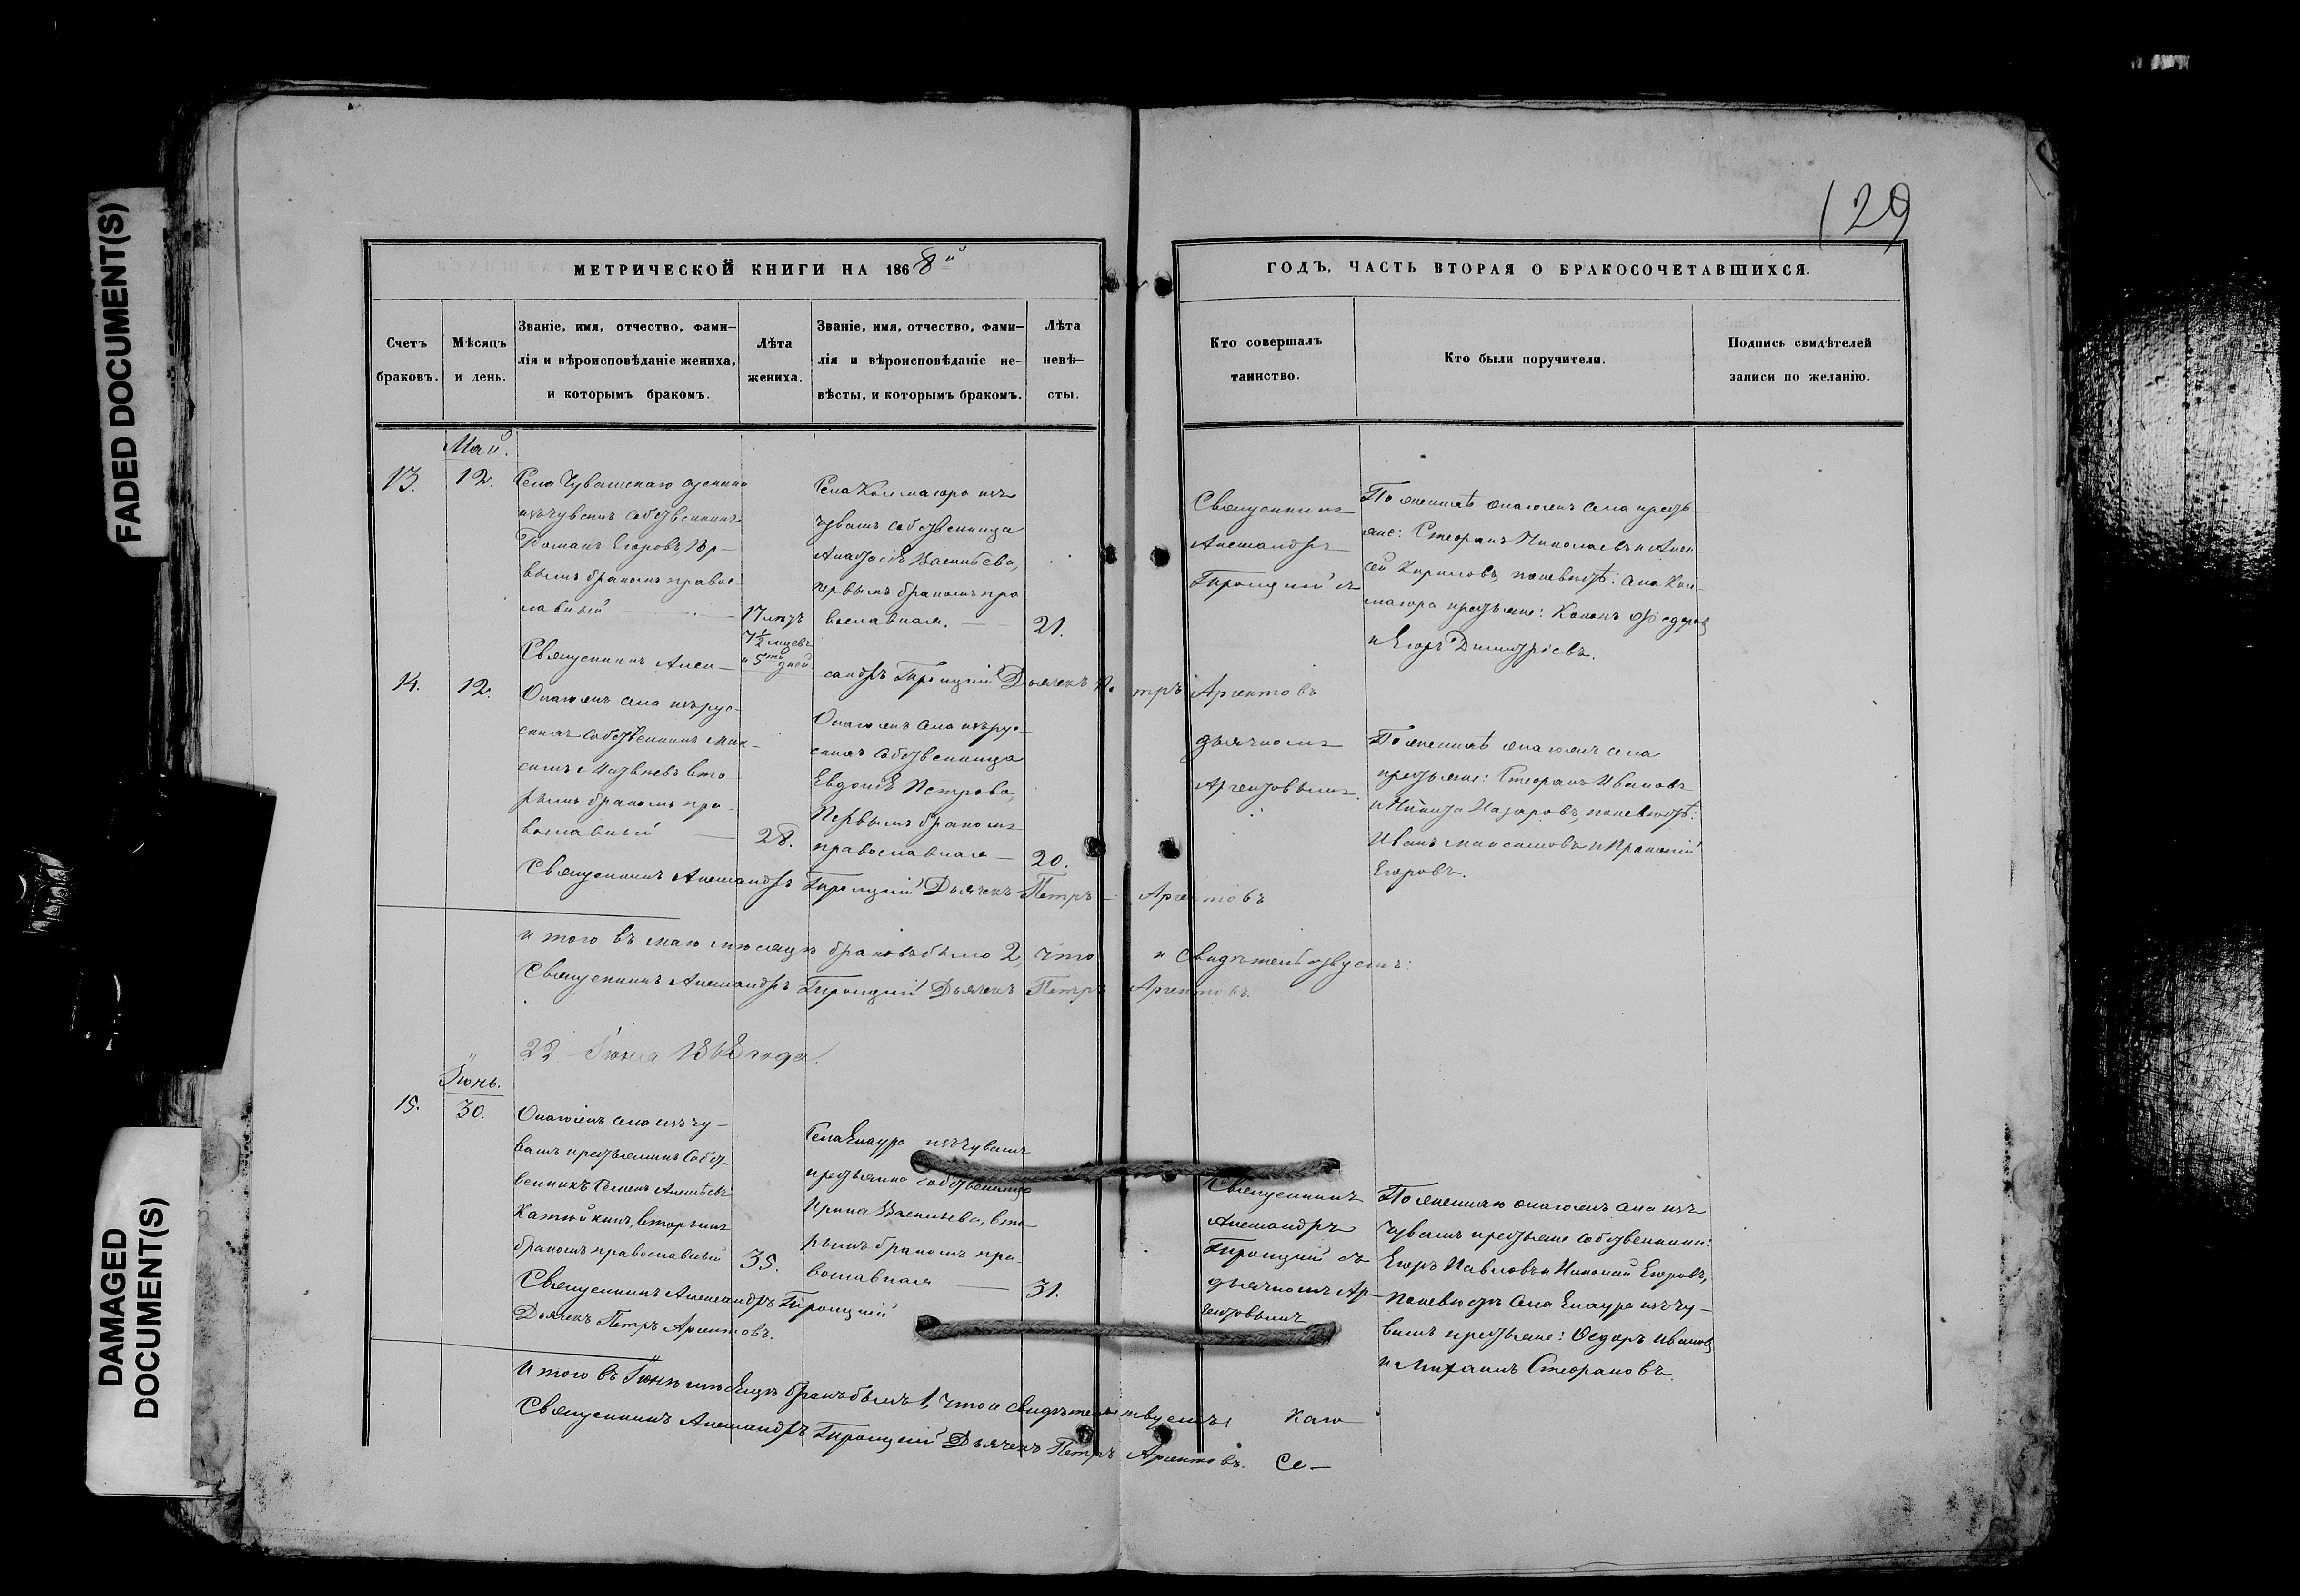 FADED DOCUMENT(S)
DAMAGED
DOCUMENT(S)
129
МЕТРИЧЕСКОЙ КНИГИ НА 1868й
ГОДЪ, ЧАСТЬ ВТОРАЯ О БРАКОСОЧЕТАВШИХСЯ.
Счетъ
браковъ.
Мѣсяцъ
и день.
Званіе, имя, отчество, фами-
лія и вѣроисповѣданіе жениха,
и которымъ бракомъ.
Лѣта
жениха.
Званіе, имя, отчество, фами-
лія и вѣроисповѣданіе не-
вѣсты, и которымъ бракомъ.
Лѣта
невѣ-
сты.
Кто совершалъ
таинство.
Кто были поручители.
Подпись свидѣтелей
записи по желанію.
Май.
13.
12.
Села Чувашскаго
изъ чувашъ собственникъ
Романъ Егоровъ, пер-
вымъ бракомъ правос-
лавный
17 лѣтъ
7½ мцевъ
и 5ти дней
Села Колмаюра изъ
чувашъ собственница
Васильева,
первымъ бракомъ пра
вославная.
21.
Священникъ
Александръ
Троицкій съ
По женихѣ села кресть-
яне: Стефанъ Николаевъ и Алек
сѣй Кириловъ, по невѣстѣ: села Кол-
маюра крестьяне: Кононъ Федоровъ
и Егоръ Димитріевъ.
Священникъ Алек-
сандръ Троицкій Дьячекъ Петръ Аргентовъ
14.
12.
села изъ рус-
скихъ собственникъ Мак-
симъ Матвѣевъ вто
рымъ бракомъ пра-
вославный
28.
села изъ рус-
скихъ собственница
Евдокія Петрова,
первымъ бракомъ
православная
20.
дьячкомъ
Аргентовымъ.
По женихѣ села
крестьяне: Стефанъ Ивановъ
и Никита Назаровъ, по невѣстѣ:
Иванъ Максимовъ и Прокопій
Егоровъ.
Священникъ Александръ Троицкій Дьячекъ Петръ Аргентовъ
итого въ маѣ мѣсяцѣ браковъ было 2, что и свидѣтельствуемъ:
Священникъ Александръ Троицкій Дьячекъ Петръ Аргентовъ.
22 Іюня 1868 года.
Іюнь.
15.
30.
села изъ чу-
вашъ крестьянинъ собст-
венникъ Семенъ Алексѣевъ
вторымъ
бракомъ православный
35.
Села Елаура изъ чувашъ
крестьянка собственница
Ирина Васильева, вто
рымъ бракомъ пра-
вославная
31.
Священникъ
Александръ
Троицкій съ
дьячкомъ Ар-
гентовымъ
По женихѣ села изъ
чувашъ крестьяне собственники:
Егоръ Павловъ и Николай Егоровъ,
по невѣстѣ села Елаура изъ чу-
вашъ крестьяне: Ѳедоръ Ивановъ
и Михаилъ Стефановъ.
Священникъ Александръ Троицкій
Дьячекъ Петръ Аргентовъ.
Итого въ Іюнѣ мѣсяцѣ бракъ былъ 1, что и свидѣтельствуемъ:
Священникъ Александръ Троицкій Дьячекъ Петръ Аргентовъ.